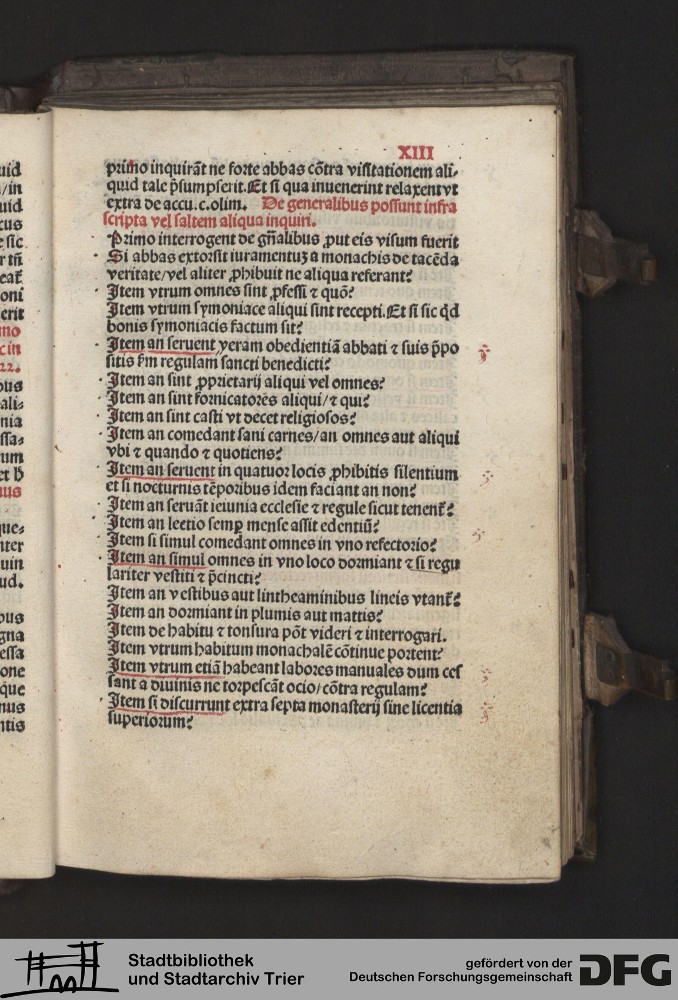 XIII
primo inquirāt ne forte abbas cōtra visitationem ali-
quid tale p̄sumpserit. Et si qua inuenerint relaxent vt
extra de accu. c. olim. De generalibus possunt infra
scripta vel saltem aliqua inquiri.
Primo interrogent de gn̄alibus ꝓut eis visum fuerit
Si abbas extorsit iuramentuꝫ a monachis de tacēda
veritate/vel aliter ꝓhibuit ne aliqua referant?
Item vtrum omnes sint ꝓfessi ⁊ quō?
Item vtrum symoniace aliqui sint recepti. Et si sic qd̄
bonis symoniacis factum sit?
Item an seruent veram obedientiā abbati ⁊ suis p̄po
sitis scd̄m regulam sancti benedicti?
Item an sint ꝓprietarij aliqui vel omnes?
Item an sint fornicatores aliqui/⁊ qui?
Item an sint casti vt decet religiosos?
Item an comedant sani carnes/an omnes aut aliqui
vbi ⁊ quando ⁊ quotiens?
Item an seruent in quatuor locis ꝓhibitis silentium
et si nocturnis tēporibus idem faciant an non?
Item an seruāt ieiunia ecclesie ⁊ regule sicut tenent̄?
Item an leetio semꝑ mense assit edentiū?
Item si simul comedant omnes in vno refectorio?
Item an simul omnes in vno loco dormiant ⁊ si regu
lariter vestiti ⁊ p̄cincti?
Item an vestibus aut lintheaminibus lineis vtant̄?
Item an dormiant in plumis aut mattis?
Item de habitu ⁊ tonsura pōt videri ⁊ interrogari.
Item vtrum habitum monachalē cōtinue portent?
Item vtrum etiā habeant labores manuales dum ces
sant a diuinis ne torpescāt ocio/cōtra regulam?
Item si discurrunt extra septa monasterij sine licentia
superiorum?
uid
/in
uid
cus
e sic
r tn̄
eat̄
oni
erit
mo
c in
22.
bus
ali-
nia
ssa-
um
et h
uus
que-
nter
uin
ud.
bus
gna
essa
one
que
nus
ntis
Stadtbibliothek
und Stadtarchiv Trier
gefördert von der
Deutschen Forschungsgemeinschaft
DFG